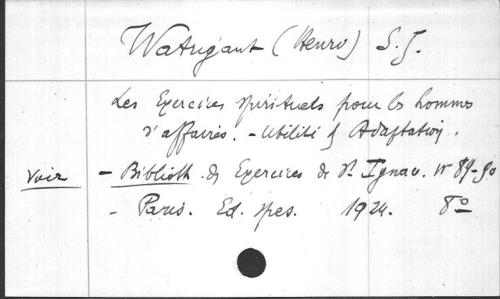 Watrigant (Henro) S.J.
Les Exercices spirituels pour les hommes
d'affaires. - Utilité & Adaptation.
voir - Biblioth. des Exercices de St Ignac. n° 89-90
- Paris. Ed. spes. 1924. 8°